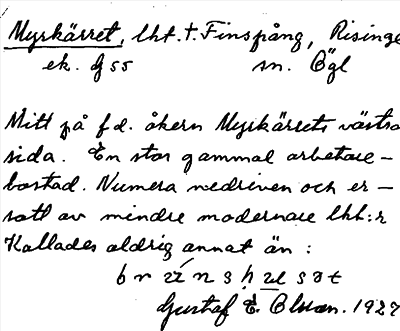 Myrkärret, lht. t. Finspång, Risinge
ek. f55 sn. Ögl
Mitt på f.d. åkern Myrkärrets västra
sida. En stor gammal arbetare-
bostad. Numera nedriven och er-
satt av mindre modernare lht:r
Kallades aldrig annat än:
Gustaf E. Olsson. 1927